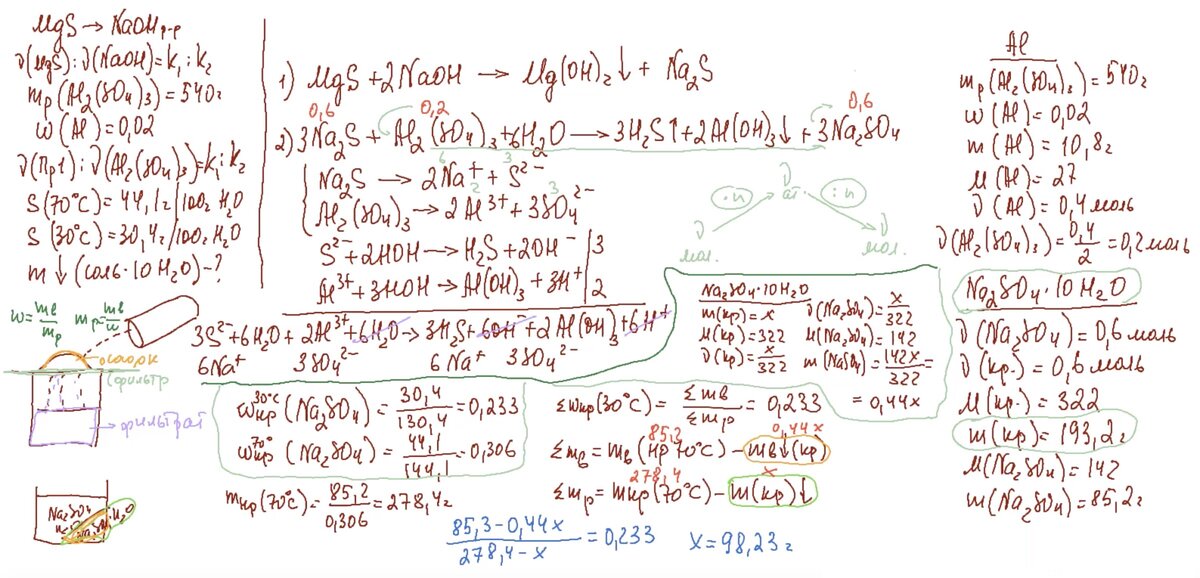 MgS → NaOH р-р
ν(MgS) : ν(NaOH) = k₁ : k₂
mр (Al₂(SO₄)₃) = 540 г
ω (Al) = 0,02
ν(Пр1) : ν(Al₂(SO₄)₃) = k₁ : k₂
S (70°C) = 44,1 г/100г H₂O
S (30°C) = 30,4 г/100г H₂O
m ↓ (соль·10 H₂O) - ?
ω = mв/mр mр = mв/ω
осадок
фильтр
фильтрат
Na₂SO₄
1) MgS + 2NaOH → Mg(OH)₂↓ + Na₂S
0,6 0,2 0,6
2) 3Na₂S + Al₂(SO₄)₃ + 6H₂O → 3H₂S↑ + 2Al(OH)₃↓ + 3Na₂SO₄
6 3
Na₂S → 2Na⁺ + S²⁻
2 3
Al₂(SO₄)₃ → 2Al³⁺ + 3SO₄²⁻
S²⁻ + 2HOH → H₂S + 2OH⁻ | 3
Al³⁺ + 3HOH → Al(OH)₃ + 3H⁺ | 2
3S²⁻ + 6H₂O + 2Al³⁺ + 6H₂O → 3H₂S + 6OH⁻ + 2Al(OH)₃ + 6H⁺
6Na⁺ 3SO₄²⁻ 6Na⁺ 3SO₄²⁻
ν ат.
·n :n
ν мол. ν мол.
Na₂SO₄·10H₂O
m(кр) = x
M(кр) = 322
ν(кр) = x/322
ν(Na₂SO₄) = x/322
M(Na₂SO₄) = 142
m(Na₂SO₄) = 142x/322 =
= 0,44x
ω кр 30°C (Na₂SO₄) = 30,4/130,4 = 0,233
ω кр 70° (Na₂SO₄) = 44,1/144,1 = 0,306
mнр (70°C) = 85,2/0,306 = 278,4 г
Σωнр (30°C) = Σmв/Σmр = 0,233
85,3 0,44x
Σmв = mв (нр 70°C) - mв↓(кр)
278,4 x
Σmр = mнр (70°C) - m(кр)↓
85,3 - 0,44x / 278,4 - x = 0,233 x = 98,23 г
Al
mр (Al₂(SO₄)₃) = 540 г
ω (Al) = 0,02
m (Al) = 10,8 г
M (Al) = 27
ν (Al) = 0,4 моль
ν(Al₂(SO₄)₃) = 0,4/2 = 0,2 моль
Na₂SO₄·10H₂O
ν (Na₂SO₄) = 0,6 моль
ν (кр.) = 0,6 моль
M (кр.) = 322
m (кр) = 193,2 г
M (Na₂SO₄) = 142
m (Na₂SO₄) = 85,2 г